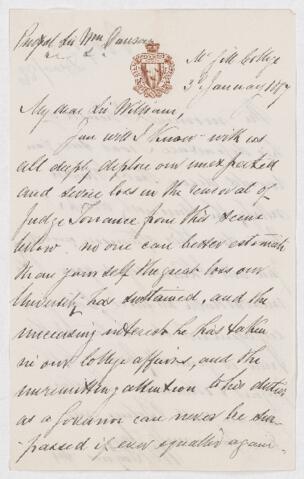 McGill College
3d January 1887
My dear Sir William,
You will I know with us
all deeply deplore our unexpected
and severe loss in the removal of
Judge Torrance from this scene
below. no one can better estimate
than yourself the great loss our
University has sustained, and the
unceasing interest he has taken
in our College affairs, and the
unremitting attention to his duties
as a Governor can never be sur-
passed if ever equalled again.